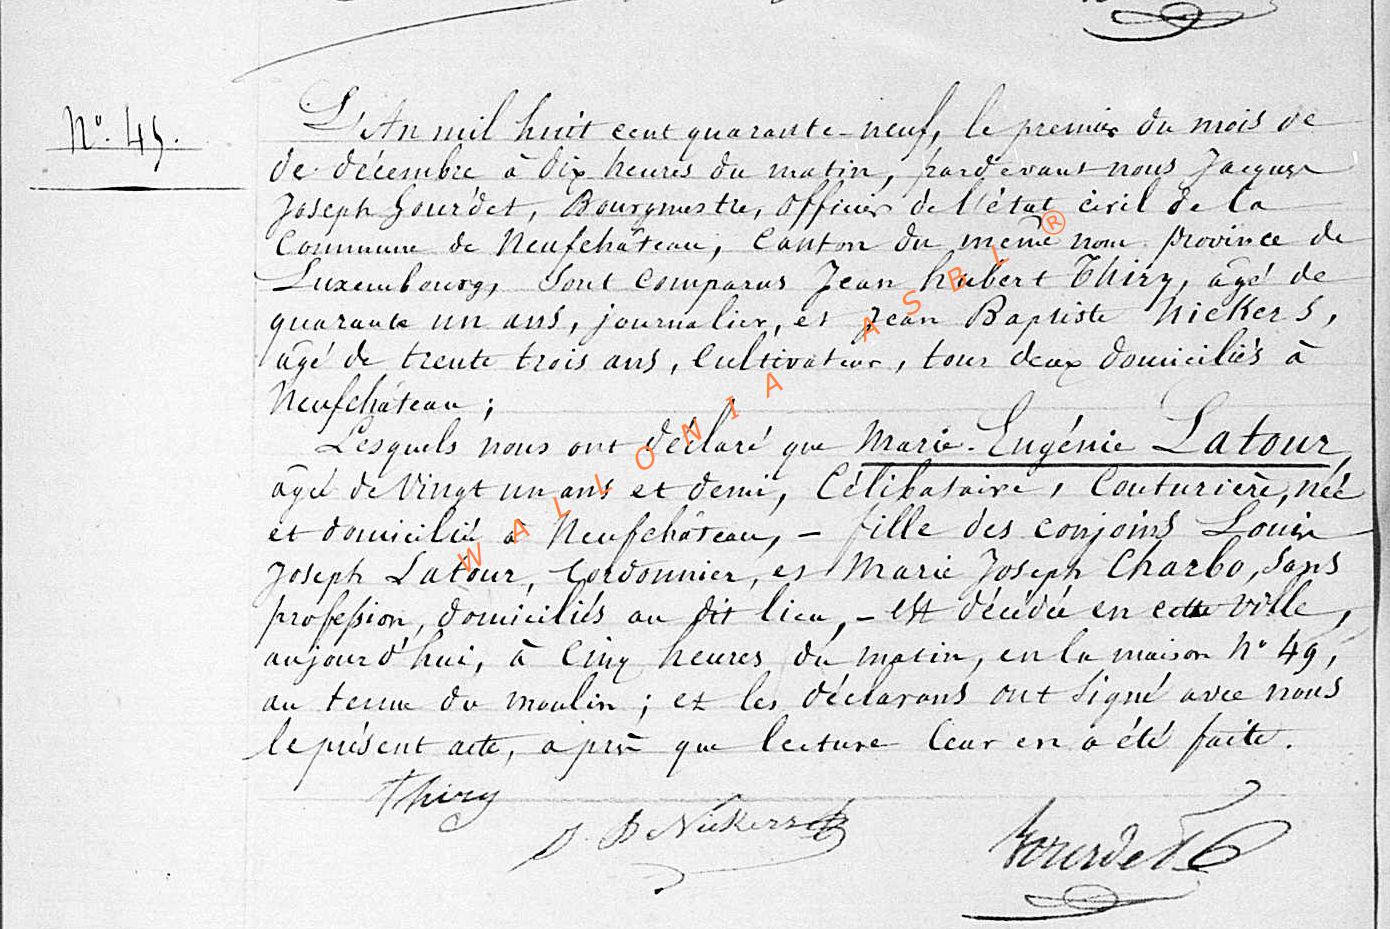 N° 45.
L'An mil huit cent quarante-neuf, le premier du mois de
de décembre à dix heures du matin, pardevant nous Jacques
Joseph Gourdet, Bourgmestre, officier de l'état civil de la
Commune de Neufchâteau, Canton du même nom province de
Luxembourg, sont comparus Jean hubert Thiry, âgé de
quarante un ans, journalier, et Jean Baptiste Nickers,
âgé de trente trois ans, Cultivateur, tous deux domiciliés à
Neufchâteau ;
Lesquels nous ont déclaré que Marie-Eugénie Latour,
âgée de Vingt un ans et demi, Célibataire, Couturière, née
et domiciliée à Neufchâteau, – fille des conjoins Louis
Joseph Latour, Cordonnier, et Marie Joseph Charbo, sans
profession, domiciliés au dit lieu, – est décédée en cette ville,
aujourd'hui, à Cinq heures du matin, en la maison N° 49,
au terme du moulin ; et les déclarans ont signé avec nous
le présent acte, après que lecture leur en a été faite.
Thiry
J. B Nickers
Gourdet
WALLONIA ASBL ®